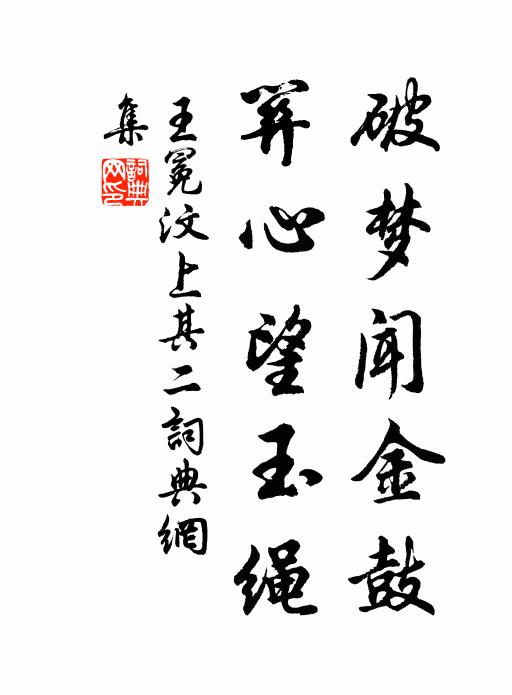 破梦闻金鼓
关心望玉绳
王冕汶上其二詞典網
集
詞典
网印